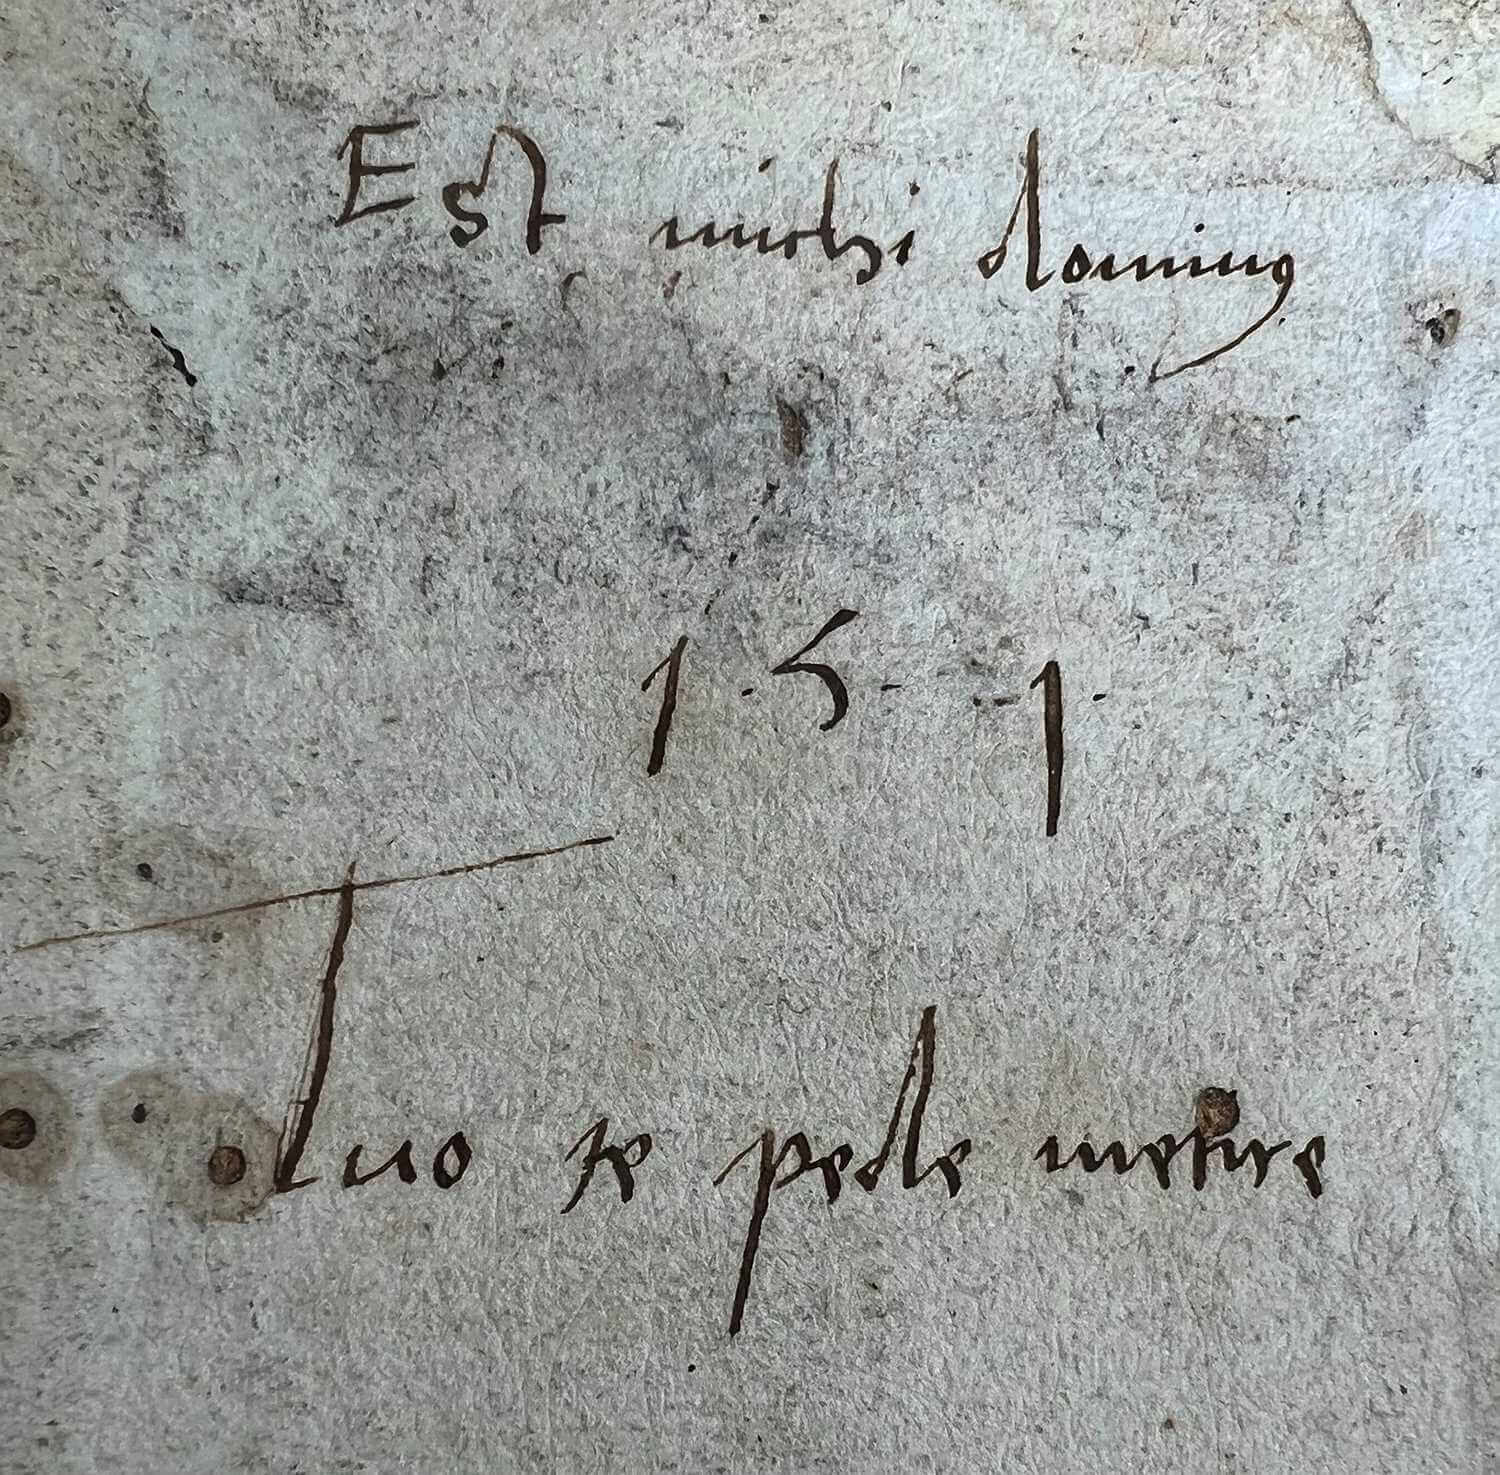 Est michi dominꝰ
1·5- -1·
Tuo te pede metire